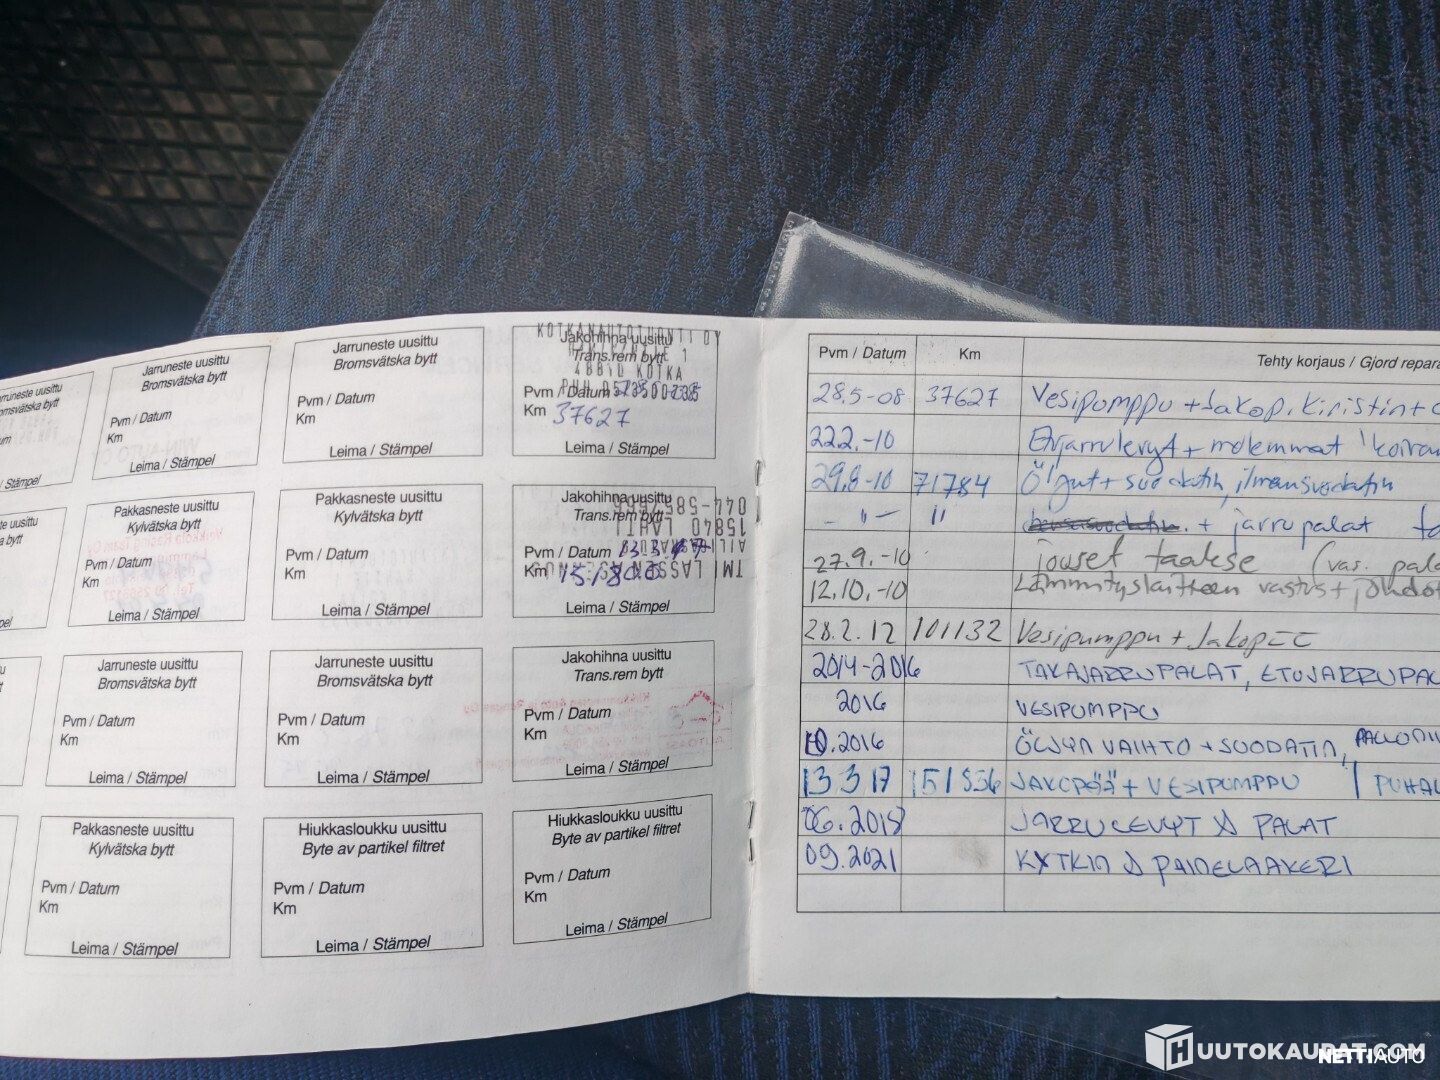 Jarruneste uusittu
Bromsvätska bytt
Pvm / Datum
Km
Leima / Stämpel
Jarruneste uusittu
Bromsvätska bytt
Pvm / Datum
Km
Leima / Stämpel
KOTKANAUTOTUONTI OY
Jakohihna uusittu
Trans.rem bytt
48810 KOTKA
Pvm / Datum
Km 37627
Leima / Stämpel
Stämpel
Pakkasneste uusittu
Kylvätska bytt
Pvm / Datum
Km
Leima / Stämpel
Pakkasneste uusittu
Kylvätska bytt
Pvm / Datum
Km
Leima / Stämpel
Jakohihna uusittu
Trans.rem bytt
044-585-
15840 LAHTI
Pvm / Datum
Km
TMI LASSE
Leima / Stämpel
Jarruneste uusittu
Bromsvätska bytt
Pvm / Datum
Km
Leima / Stämpel
Jarruneste uusittu
Bromsvätska bytt
Pvm / Datum
Km
Leima / Stämpel
Jakohihna uusittu
Trans.rem bytt
Pvm / Datum
Km
Leima / Stämpel
Pakkasneste uusittu
Kylvätska bytt
Pvm / Datum
Km
Leima / Stämpel
Hiukkasloukku uusittu
Byte av partikel filtret
Pvm / Datum
Km
Leima / Stämpel
Hiukkasloukku uusittu
Byte av partikel filtret
Pvm / Datum
Km
Leima / Stämpel
Pvm / Datum Km Tehty korjaus / Gjord repara
28.5-08 37627 Vesipumppu + Jakop. kiristin +
22.2.-10 Etujarrulevyt + molemmat
29.8-10 71784 Öljyt + suodatin, ilmansuodatin
- " - " + jarrupalat
27.9.-10 jouset taakse (vas.
12.10.-10 Lämmityslaitteen vastus + johdot
28.2.12 101132 Vesipumppu +
2014-2016 TAKAJARRUPALAT, ETUJARRUPAL
2016 VESIPUMPPU
10.2016 ÖLJYN VAIHTO + SUODATIN,
13.3.17 151836 JAKOPÄÄ + VESIPUMPPU / PUHAL
06.2018 JARRULEVYT & PALAT
09.2021 KYTKIN & PAINELAAKERI
HUUTOKAUPAT.COM
NETTIAUTO